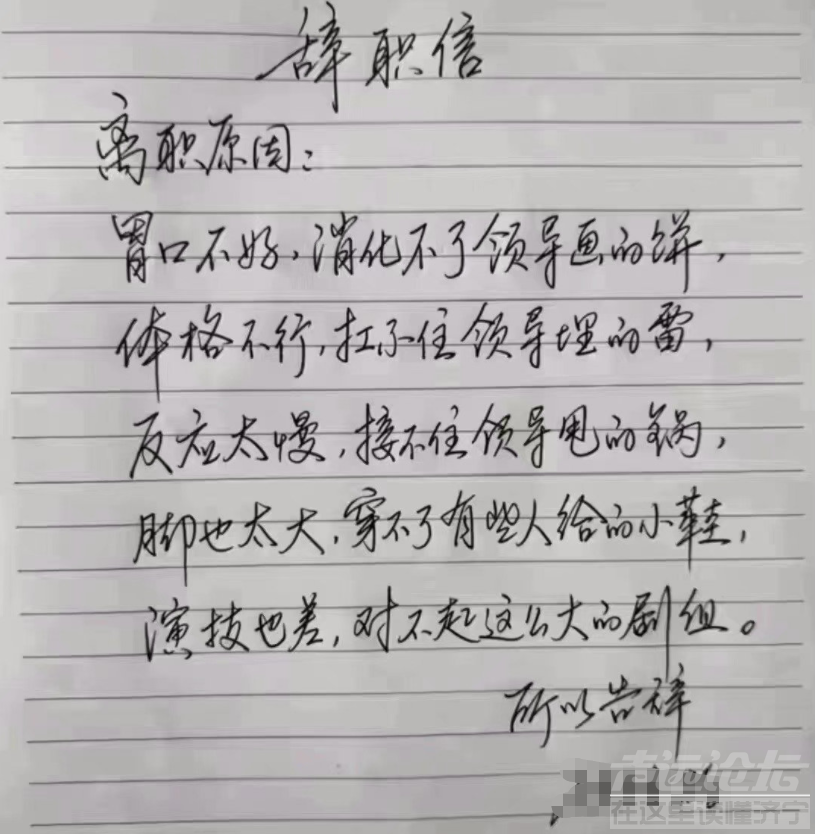 辞职信
离职原因：
胃口不好，消化不了领导画的饼，
体格不行，扛不住领导埋的雷，
反应太慢，接不住领导甩的锅，
脚也太大，穿不了有些人给的小鞋，
演技也差，对不起这么大的剧组。
所以告辞
在这里读懂济宁